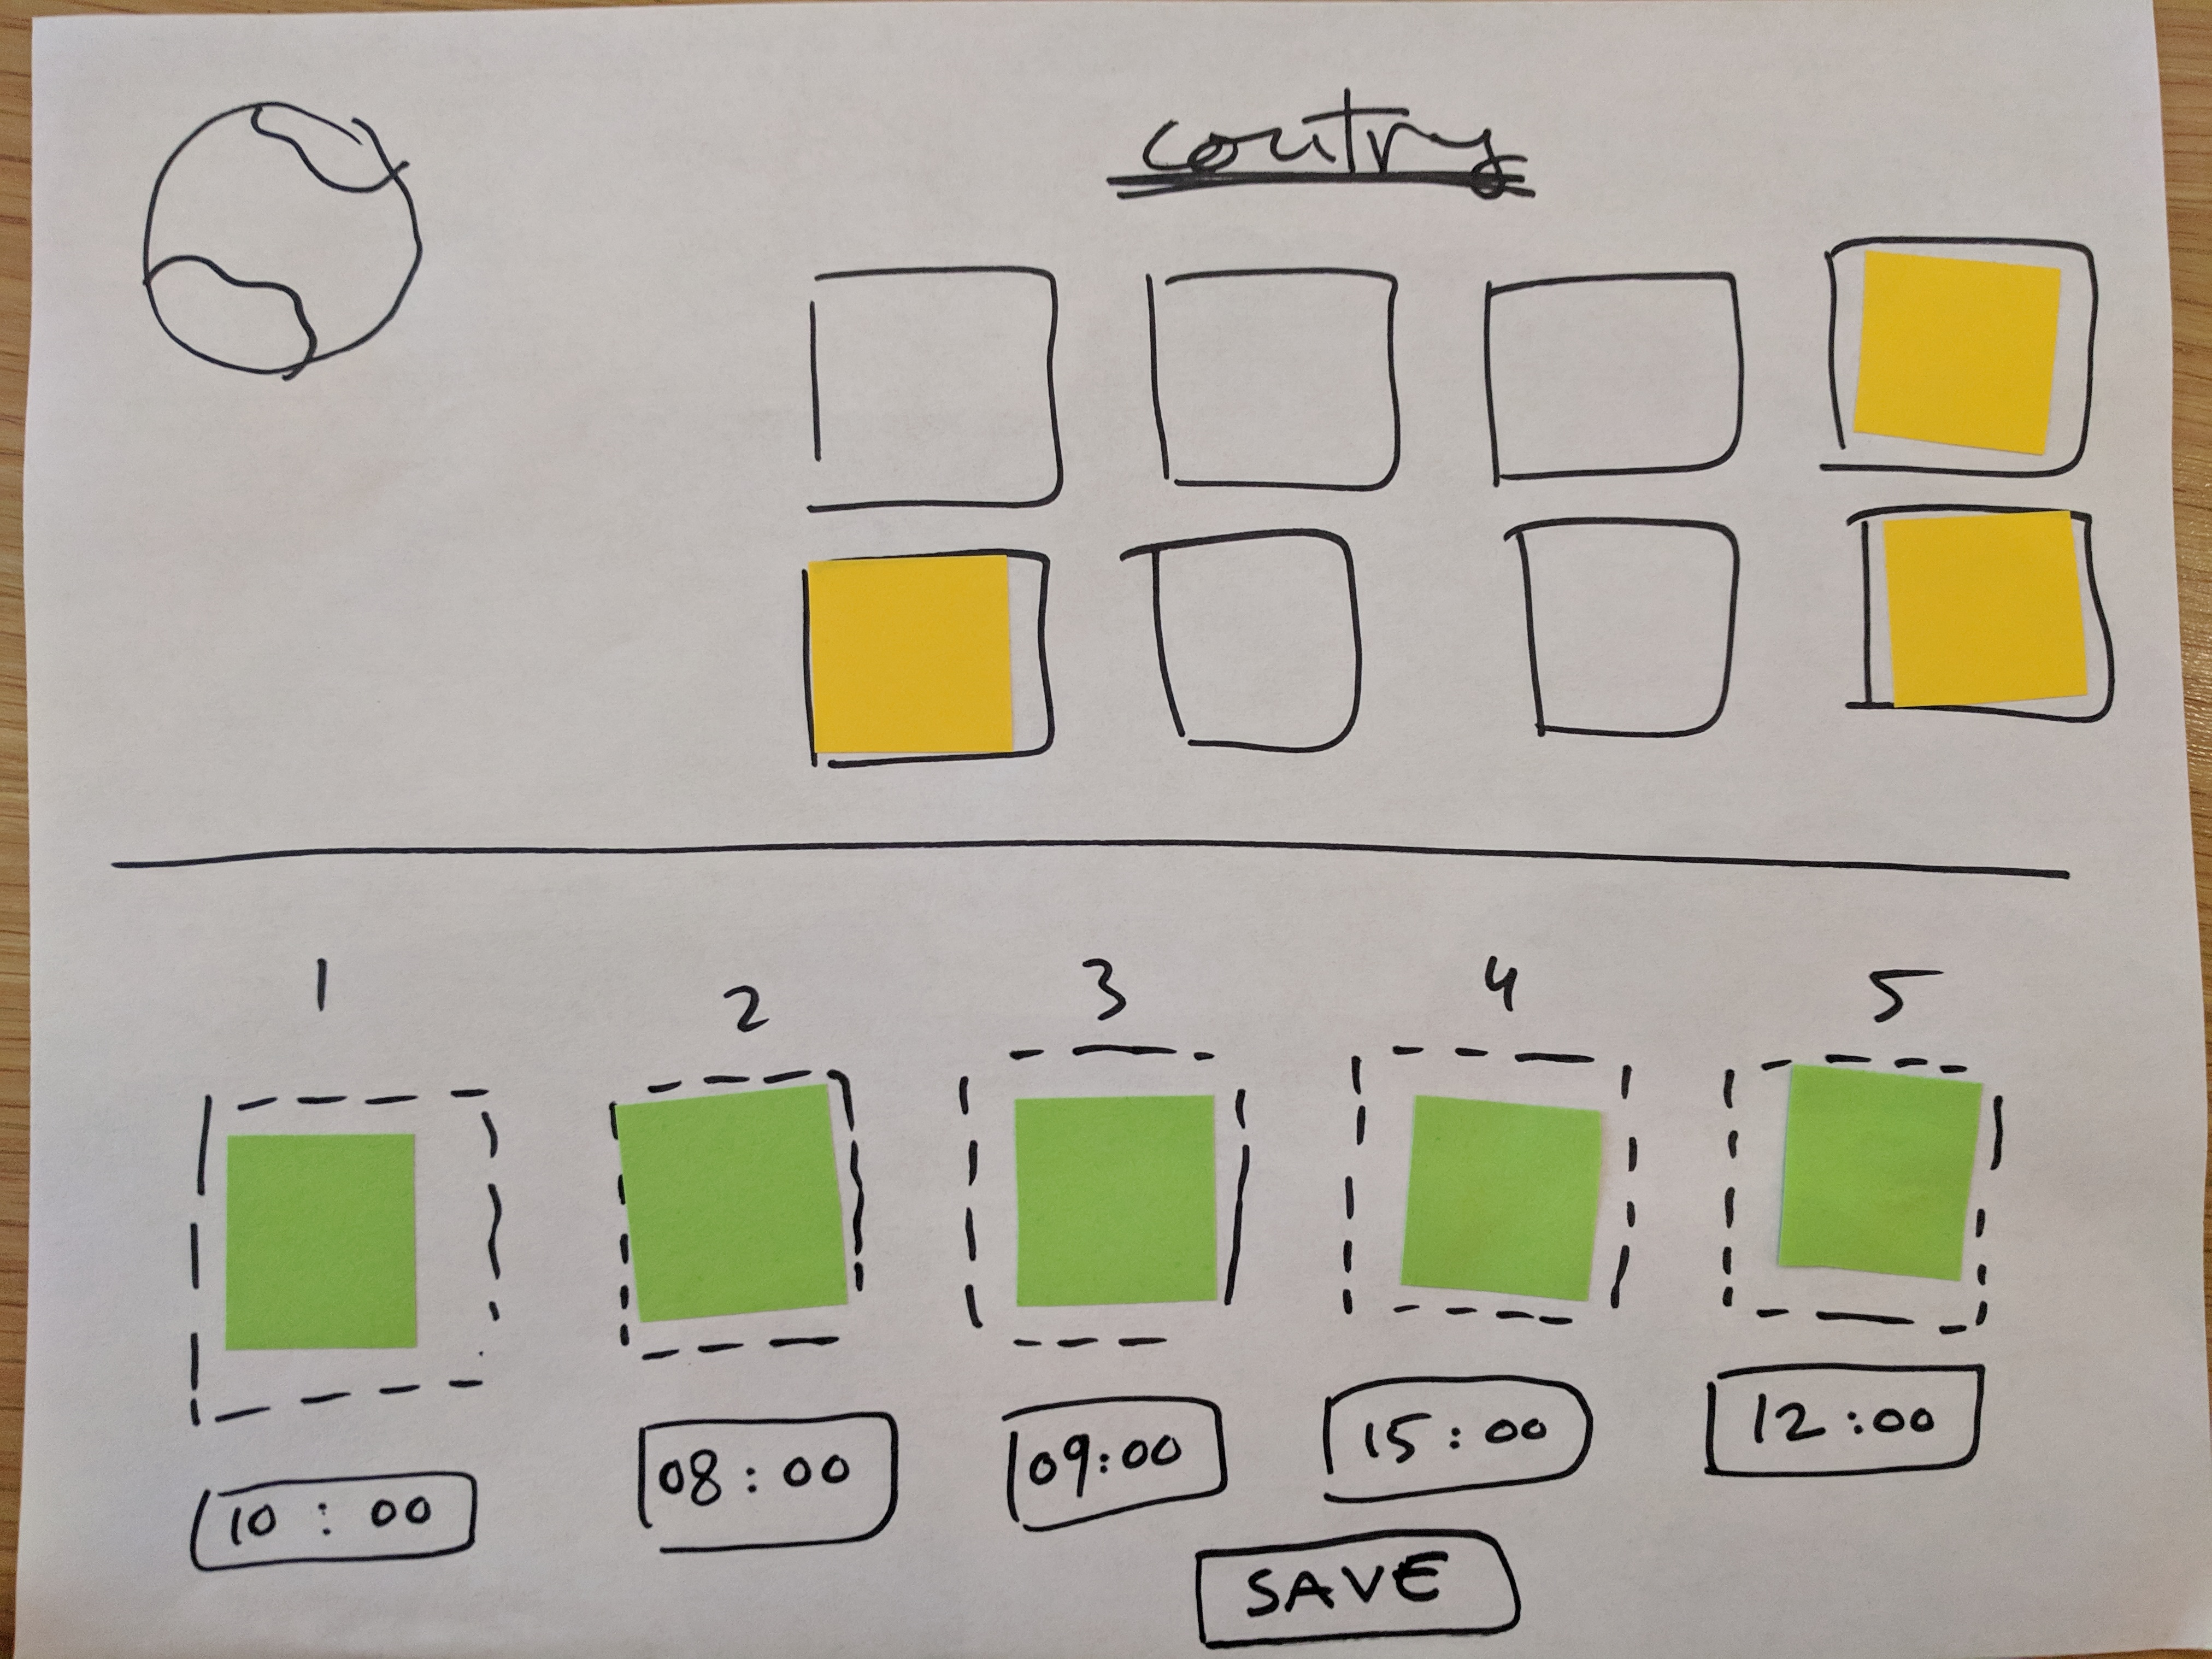 coutry
1 2 3 4 5
10 : 00 08 : 00 09:00 15 : 00 12 :00
SAVE